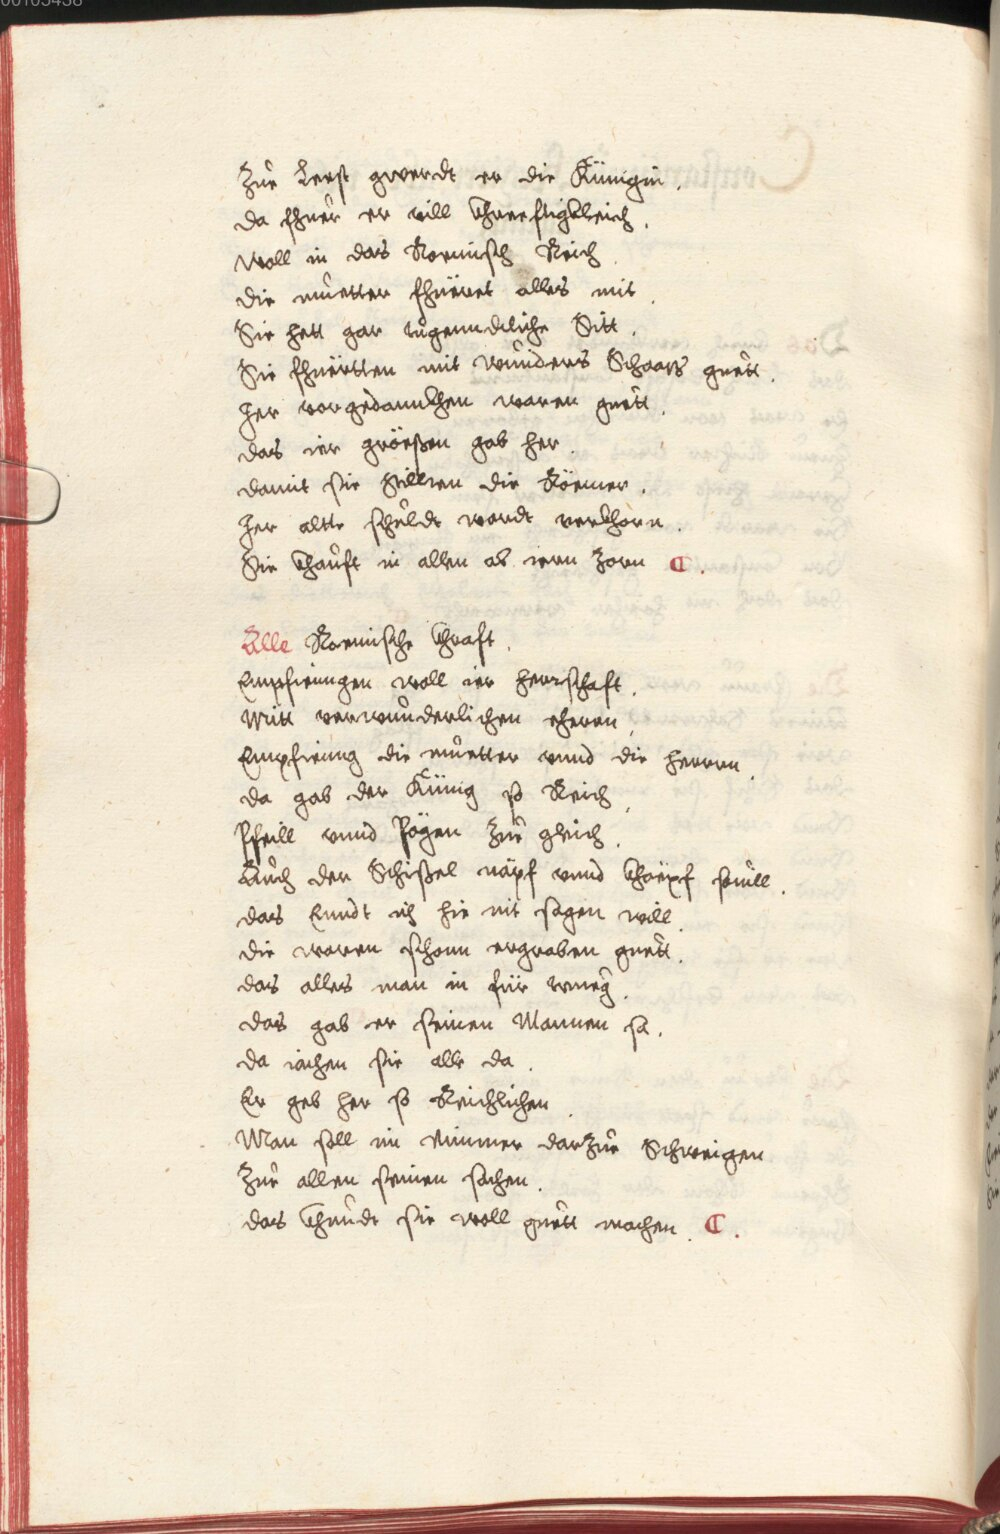 00103438
Zur Lerst gwerdt er die Künigin .
da fhuer er vill Khreefftigkleich .
woll in das Roemisch Reich
die muetter fhüeret alles mit .
Sie hett gar tugenndtliche Sitt .
Sie fhüertten mit wunders Schaarss guett .
Her vorgedannkhen waren guett .
das ier gröessen gab her .
damit sie Stillten die Röemer .
Her altte schuldt wardt verkhorn .
Sie khauft in allen ab iren zorn .
Alle Roemische khraft .
Empfiengen woll ier herrschaft .
Mitt verwunderlichen eheren
Empfieng die muetter vnnd die herren .
da gab der Künig so Reich ,
Pfeill vnnd Pögen Zur gleich .
Auch der Schissel näpf vnnd khöepf souill .
das Enndt ich hie nit sagen will .
die waren schonn ergraben guett .
das alles man in für trueg .
das gab er seinen Mannen sa .
da iachen sie alle da .
Er geb her so Reichlichen .
Man soll im Nimmer darzue Schweigen
Zue allen seinen sachen .
das khundt sie woll guett machen .